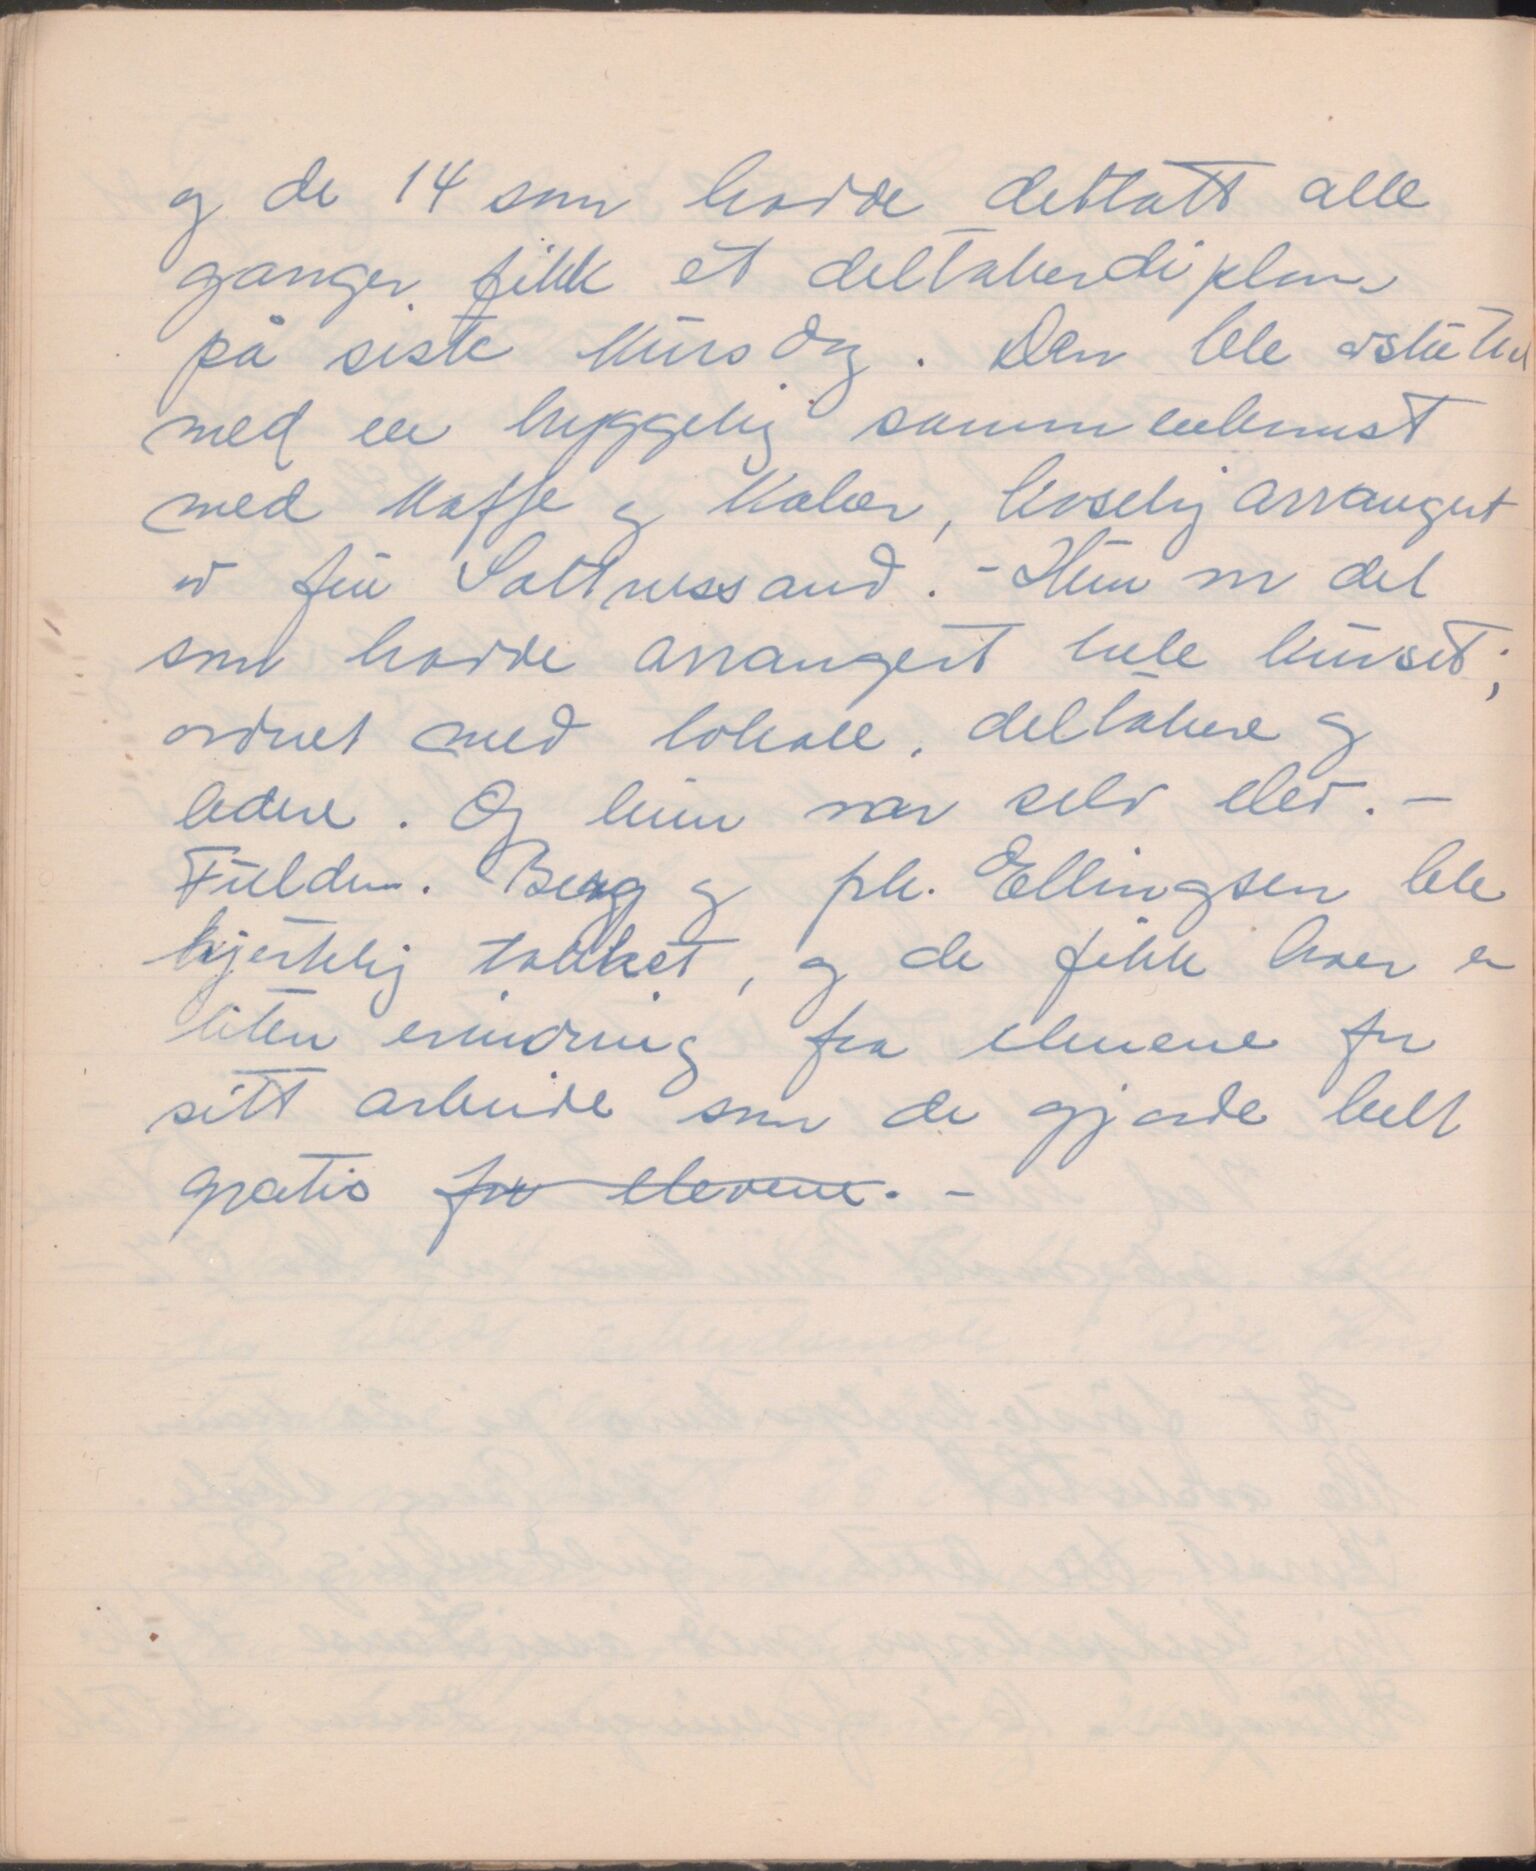 og de 14 som hadde deltatt alle
ganger fikk et deltakerdiplom
på siste kursdag. Den ble avsluttet
med en hyggelig sammenkomst
med kaffe og kaker, koselig arrangert
av fru Saltnessand. - Hun var det
som hadde arrangert hele kurset;
ordnet med lokale, deltakere og
ledere. Og hun var selv elev. -
Fuldm. Berg og frk. Ellingsen ble
hjertelig takket, og de fikk hver en
liten erindring fra elevene for
sitt arbeide som de gjorde helt
gratis for elevene. -